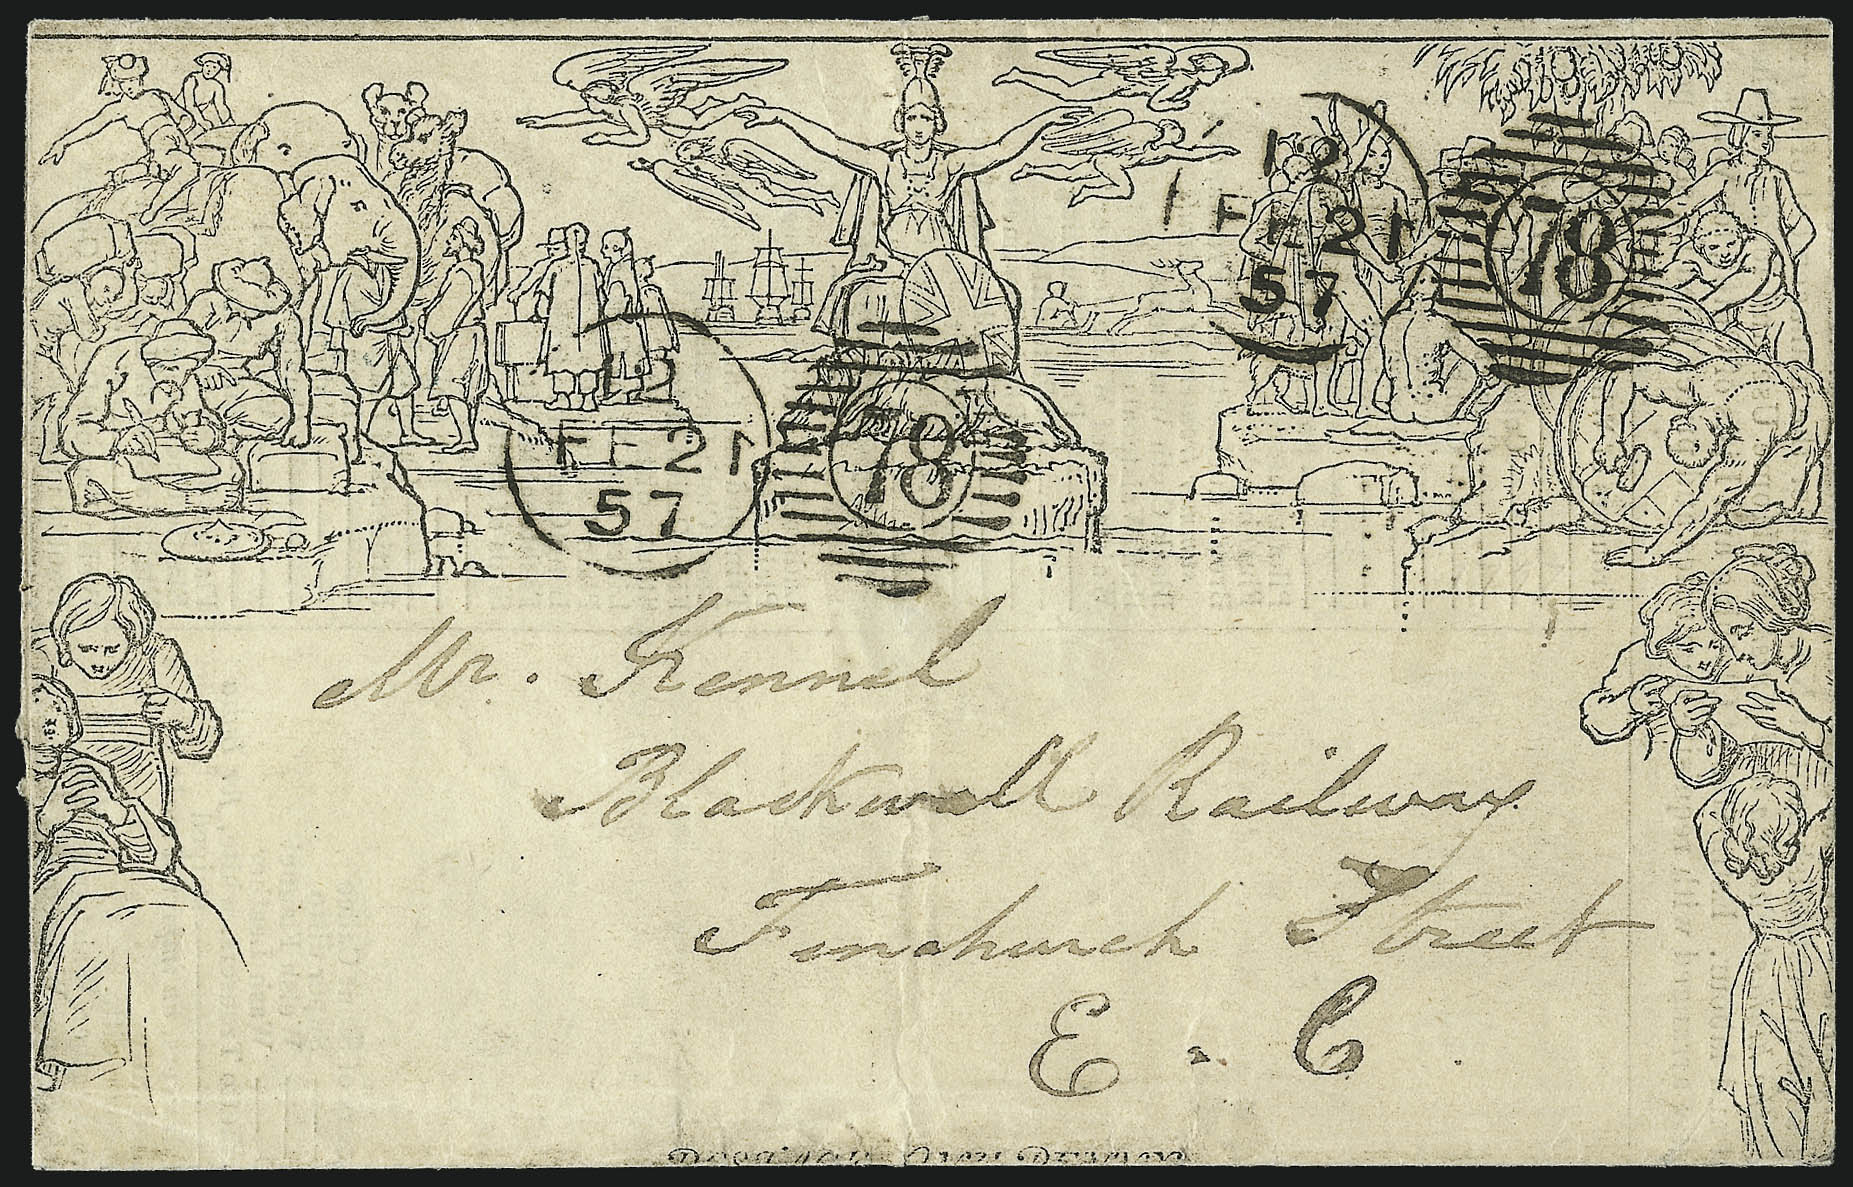 12
FE 21
57
78
12
FE 21
57
78
Mr. Kennel
Blackwall Railway
Fenchurch Street
E. C.